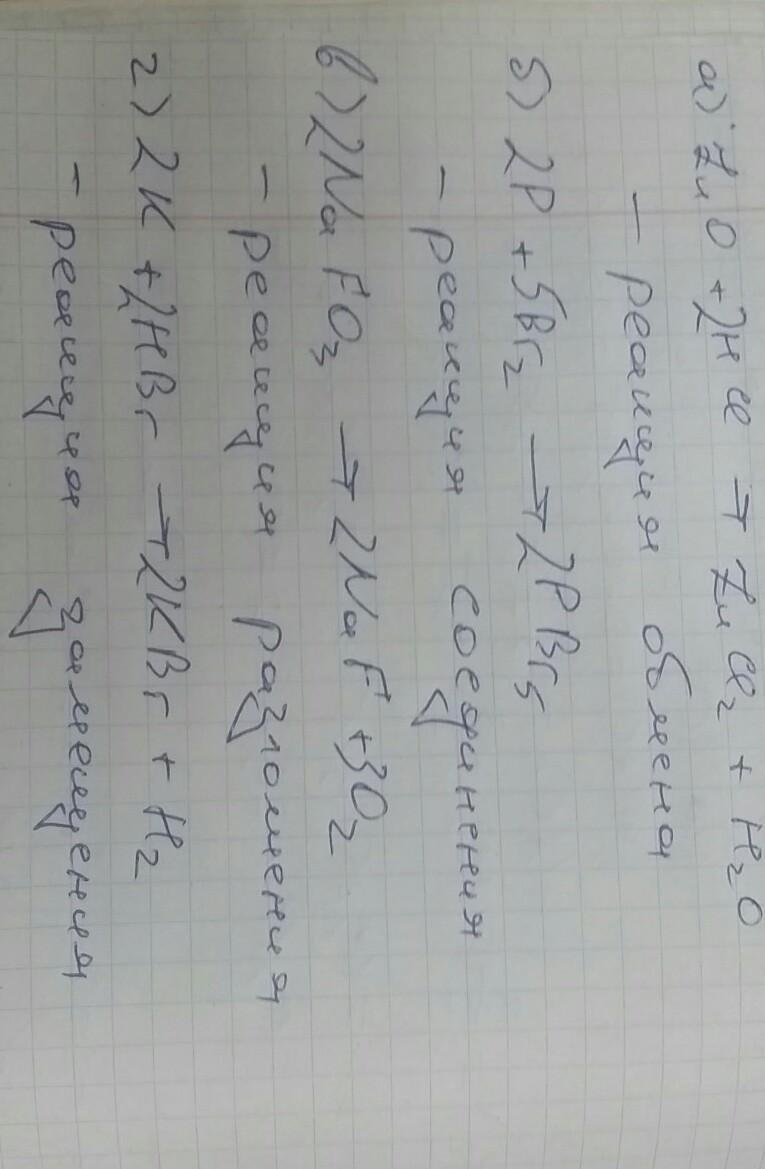 а) ZnO + 2HCl → ZnCl₂ + H₂O
– реакция обмена
б) 2P + 5Br₂ → 2PBr₅
– реакция соединения
в) 2NaFO₃ → 2NaF + 3O₂
– реакция разложения
г) 2K + 2HBr → 2KBr + H₂
– реакция замещения